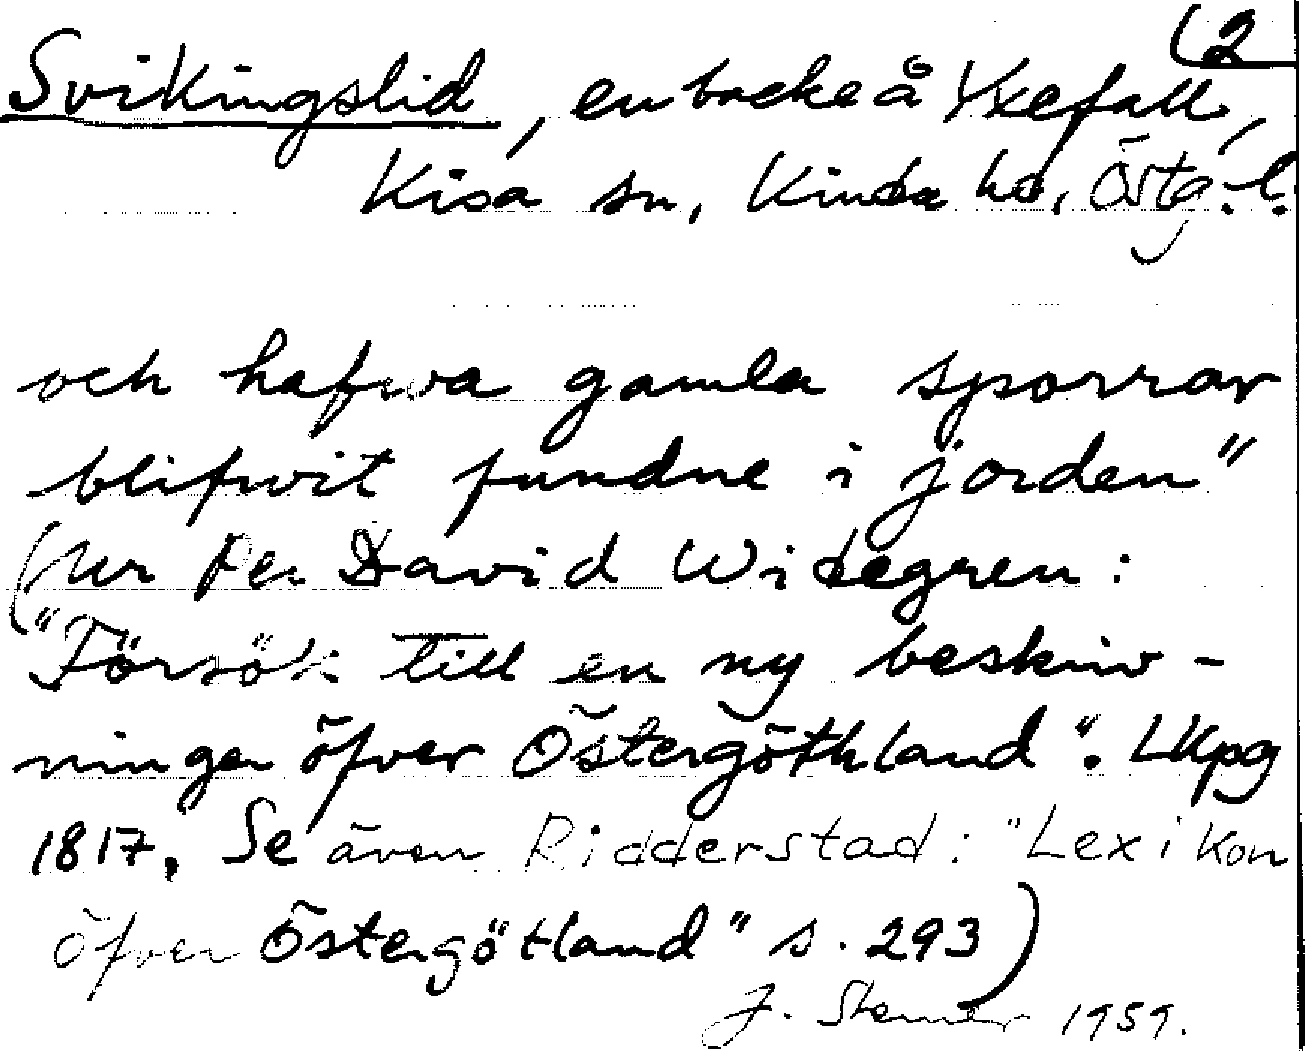 (2
Svikingslid, en backe å Yxefall,
Kisa sn, Kinda hd, Östg. l.
och hafwa gamla sporrar
blifwit fundne i jorden"
(ur Per David Widegren:
"Försök till en ny beskriv-
ningen öfver Östergöthland". Lkpg
1817. Se även Ridderstad: "Lexikon
öfver Östergötland" s. 293)
J. 1959.